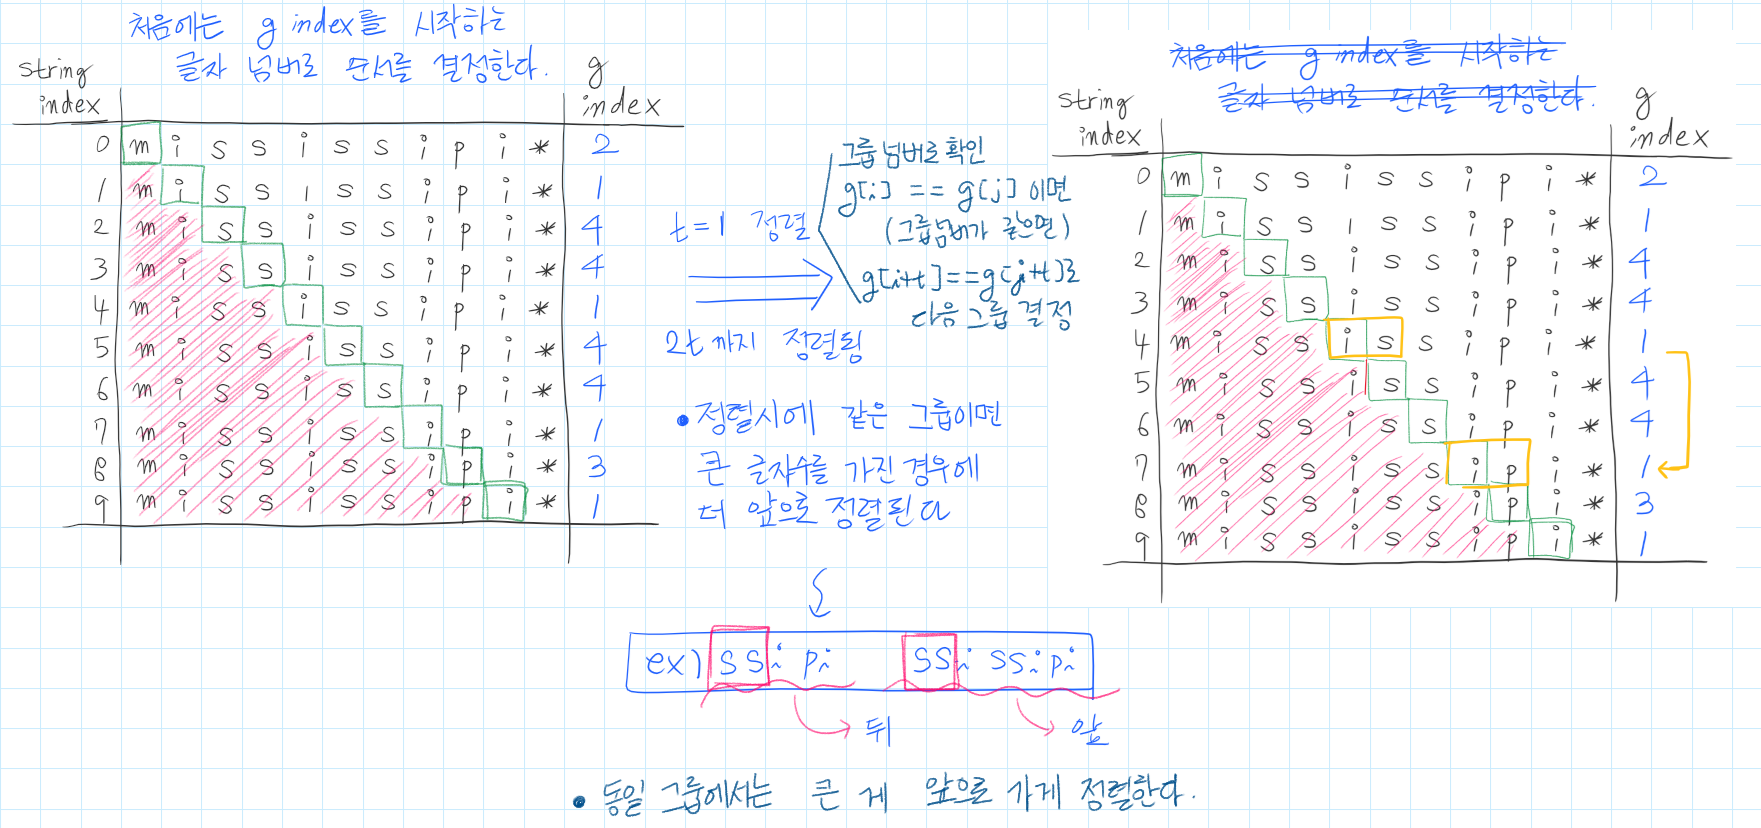 처음에는 g index를 시작하는
글자 넘버로 순서를 결정한다.
string index g index
0 m i s s i s s i p i * 2
1 m i s s i s s i p i * 1
2 m i s s i s s i p i * 4
3 m i s s i s s i p i * 4
4 m i s s i s s i p i * 1
5 m i s s i s s i p i * 4
6 m i s s i s s i p i * 4
7 m i s s i s s i p i * 1
8 m i s s i s s i p i * 3
9 m i s s i s s i p i * 1
t=1 정렬
2t까지 정렬됨
그룹넘버로 확인
g[i] == g[j] 이면
(그룹넘버가 같으면)
g[i+t]==g[j+t]로
다음 그룹 결정
• 정렬시에 같은 그룹이면
큰 글자수를 가진 경우에
더 앞으로 정렬된다
처음에는 g index를 시작하는
글자 넘버로 순서를 결정한다.
string index g index
0 m i s s i s s i p i * 2
1 m i s s i s s i p i * 1
2 m i s s i s s i p i * 4
3 m i s s i s s i p i * 4
4 m i s s i s s i p i * 1
5 m i s s i s s i p i * 4
6 m i s s i s s i p i * 4
7 m i s s i s s i p i * 1
8 m i s s i s s i p i * 3
9 m i s s i s s i p i * 1
ex) ssipi ssissipi
뒤 앞
• 동일 그룹에서는 큰 게 앞으로 가게 정렬한다.